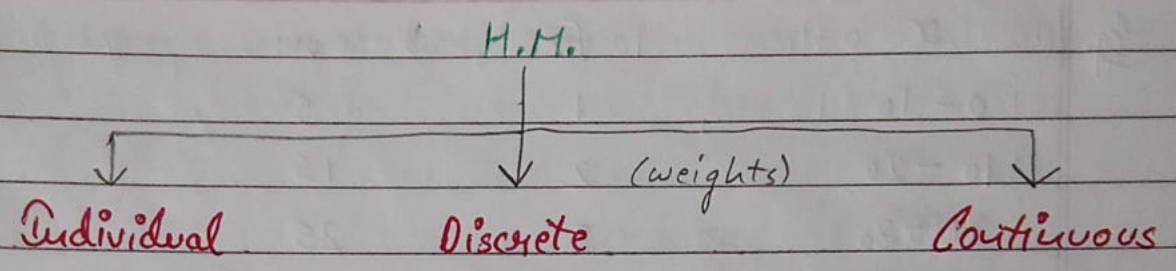 H.M.
(weights)
Individual Discrete Continuous